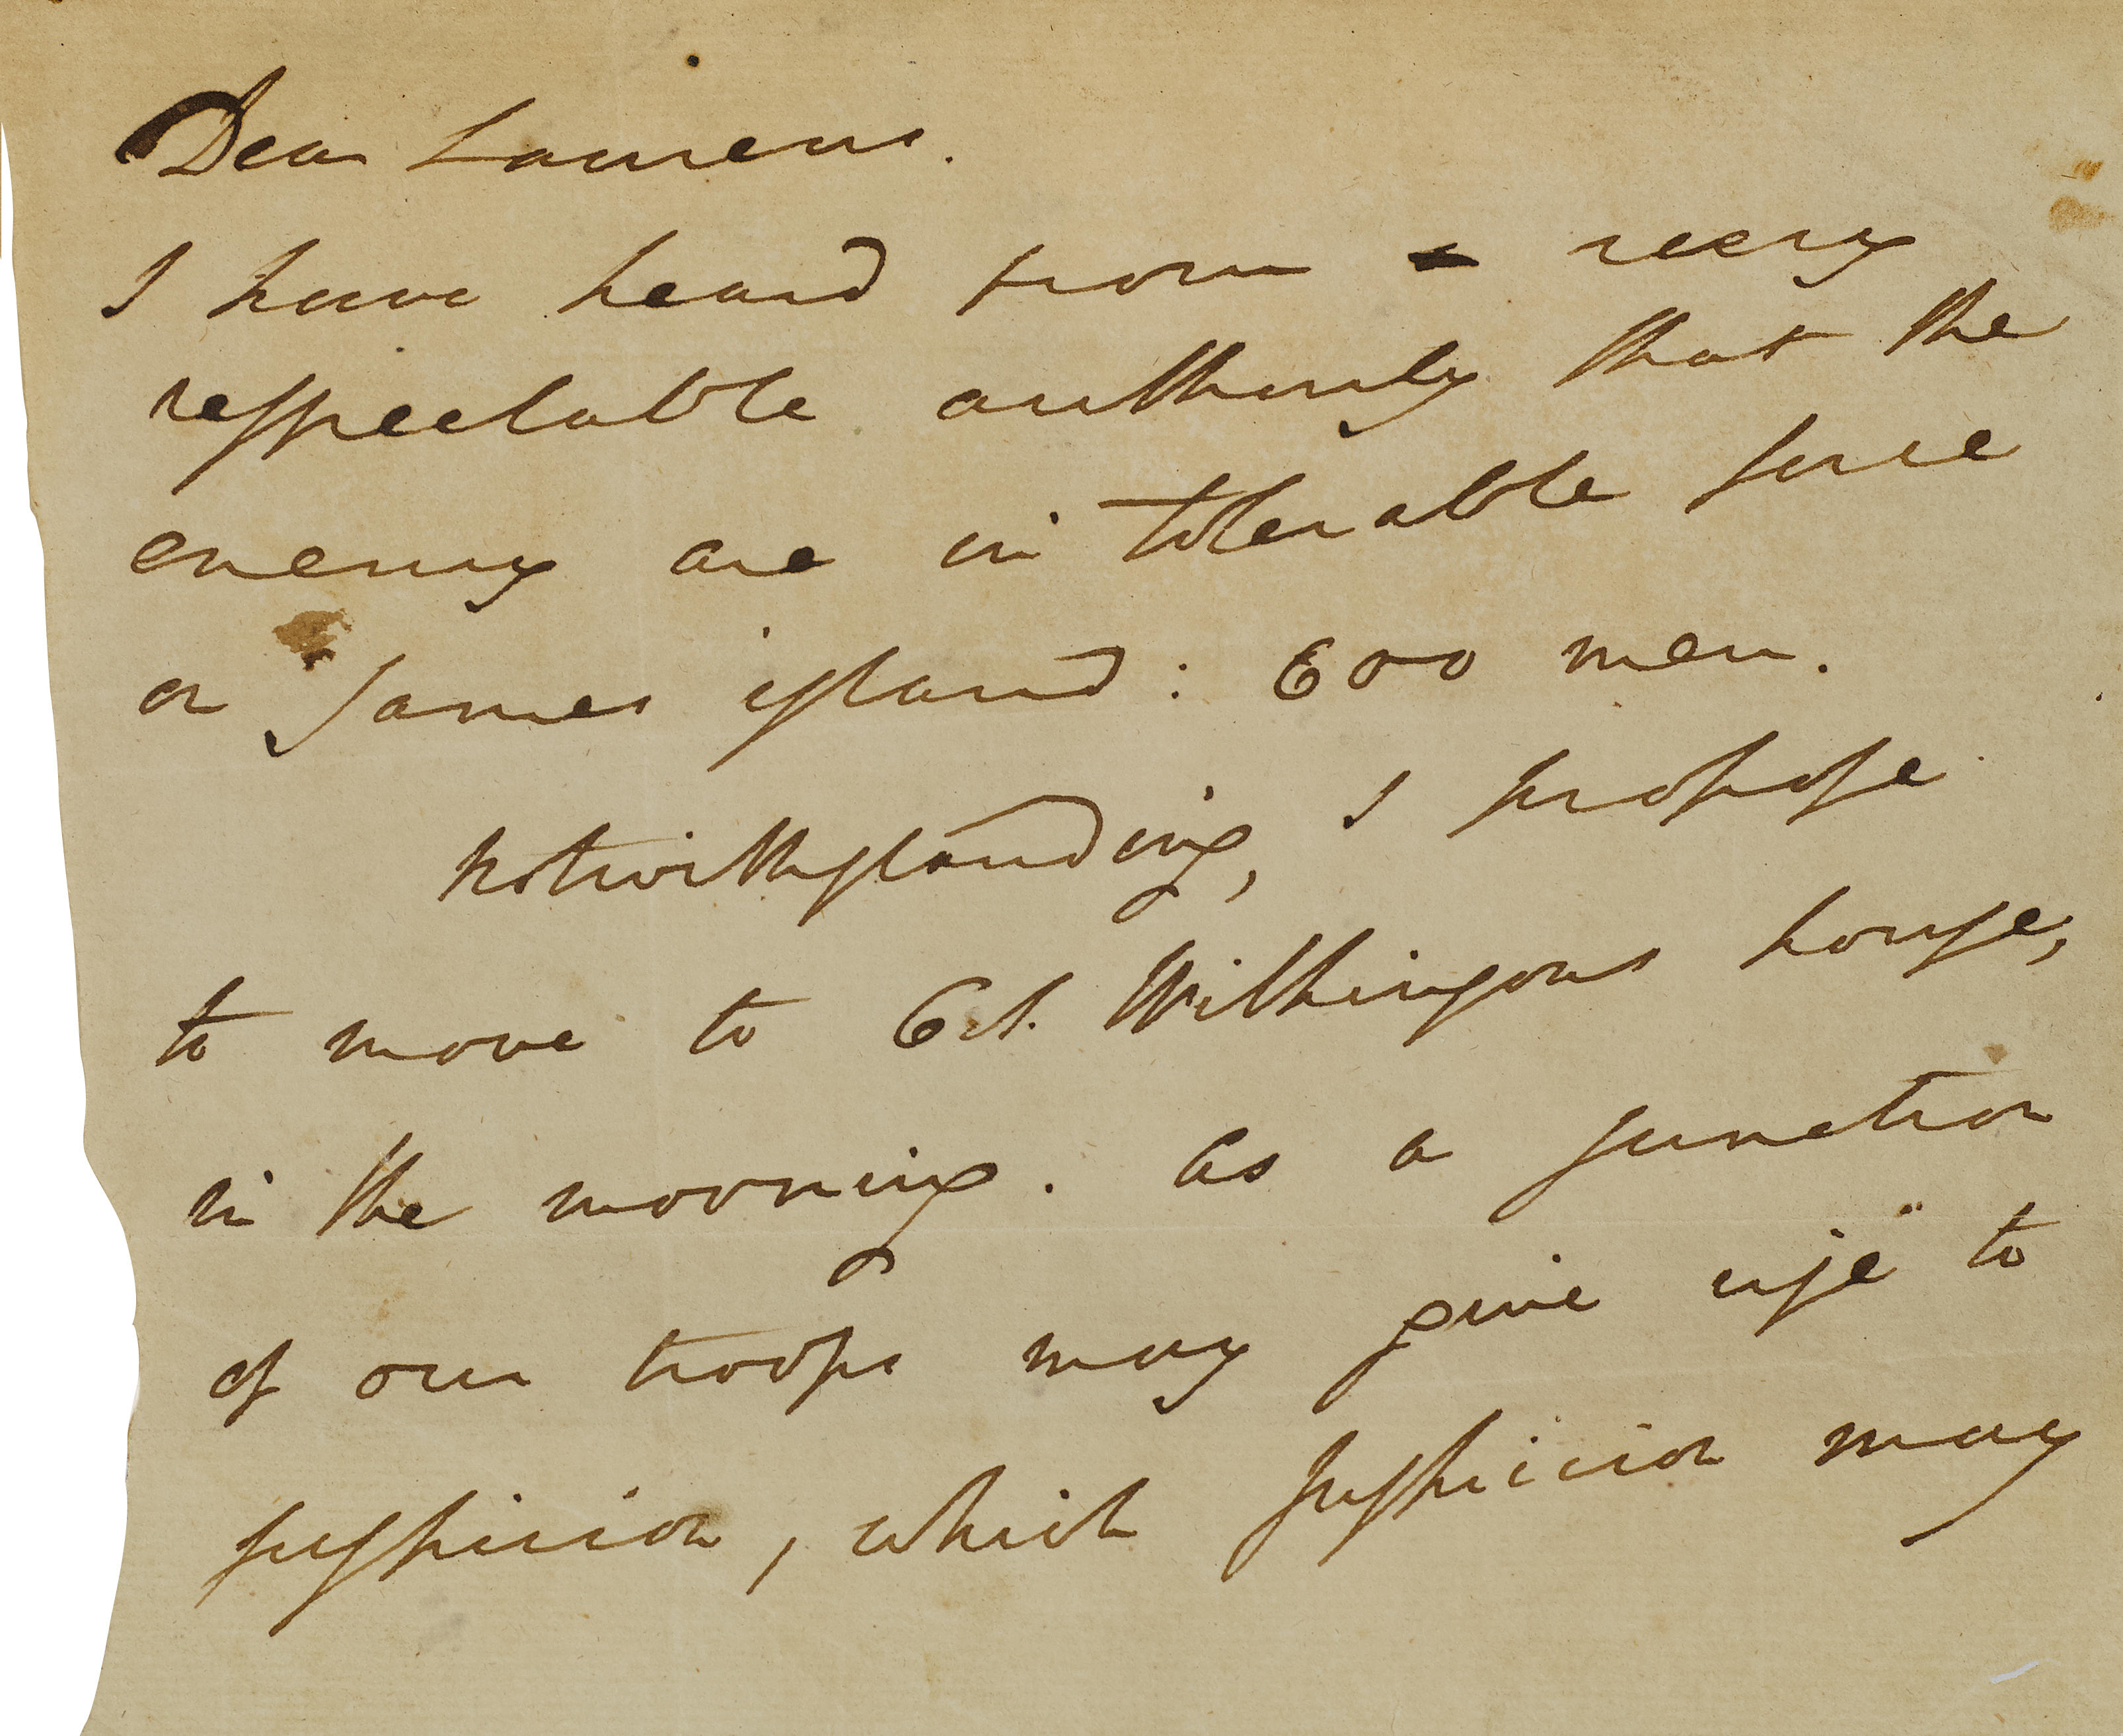 Dear Laurens.
I have heard from a very
respectable authority that the
enemy are in tolerable force
on James island: 600 men.
notwithstanding, I propose
to move to Col. Wilkinsons house,
in the morning. as a junction
of our troops may give rise to
suspicion, which suspicion may